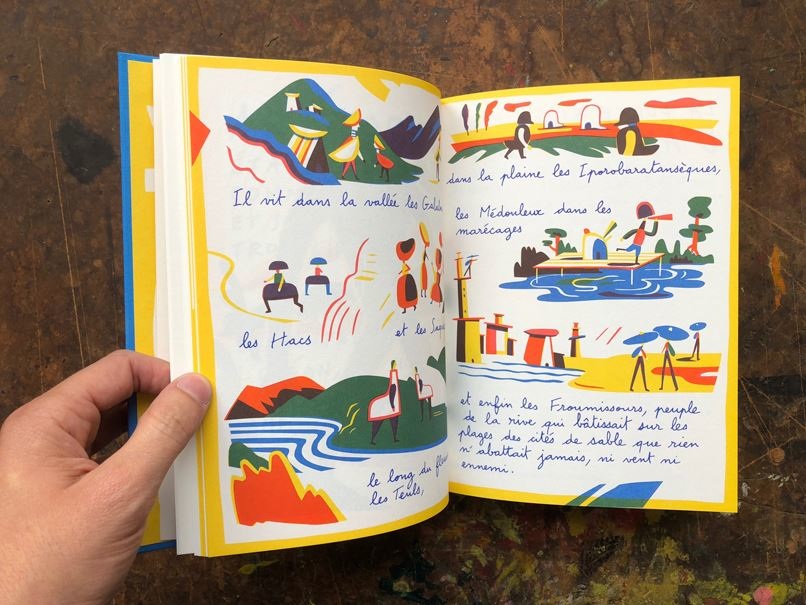 Il vit dans la vallée les
les Hacs
et les
le long du
les Teuls,
dans la plaine les Iporobaratansèques,
les Médouleux dans les
marécages
et enfin les Froumissours, peuple
de la rive qui bâtissait sur les
plages des cités de sable que rien
n'abattait jamais, ni vent ni
ennemi.